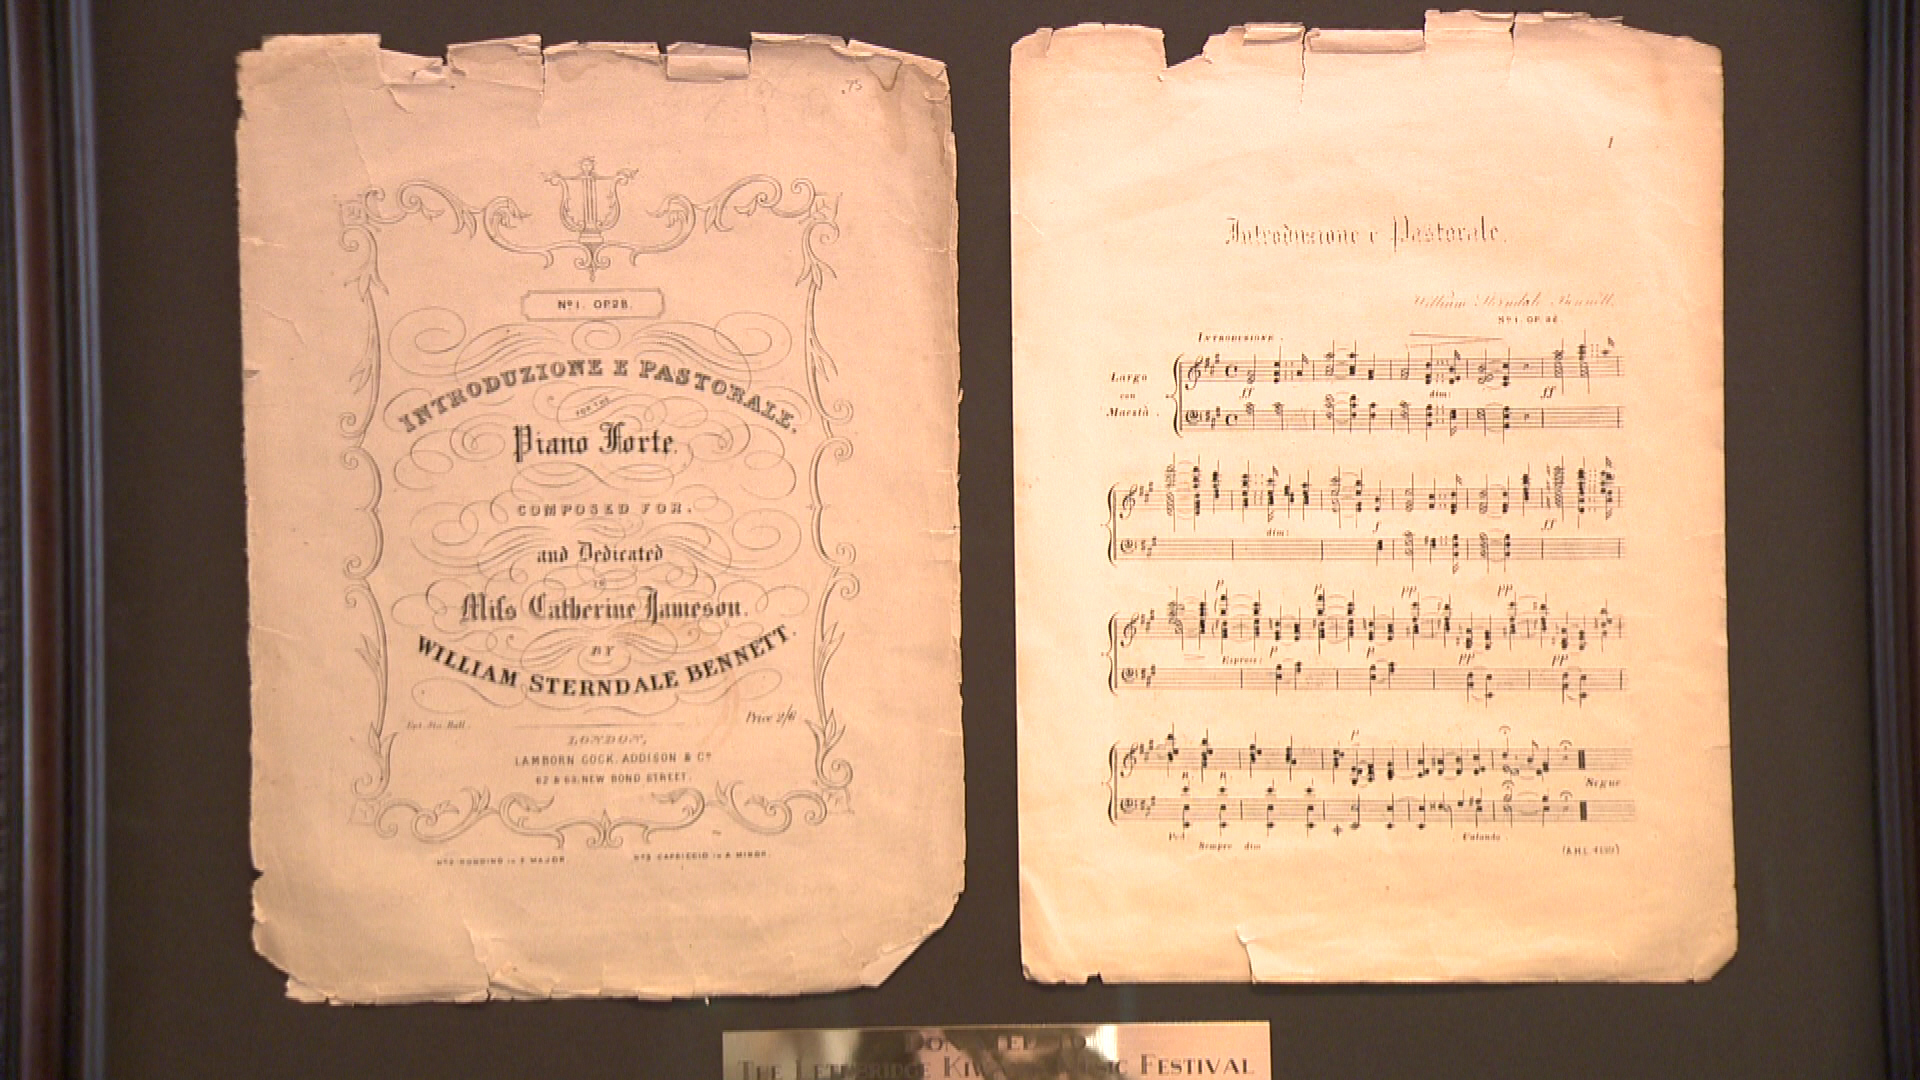 .75
Nº1. OP.28.
INTRODUZIONE E PASTORALE.
FOR THE
Piano Forte.
COMPOSED FOR,
and Dedicated
TO
Miſs Catherine Jameson.
BY
WILLIAM STERNDALE BENNETT.
Ent. Sta. Hall.
Price 2/6
LONDON,
LAMBORN COCK, ADDISON & Cº
62 & 63, NEW BOND STREET.
Nº2 RONDINO in E MAJOR
Nº3 CAPRICCIO in A MINOR.
1
Introduzione e Pastorale.
William Sterndale Bennett.
Nº1. OP. 28.
INTRODUZIONE.
Largo
con
Maestà.
ff
dim:
ff
dim:
f
ff
p
p
pp
pp
Espress:
p
p
pp
pp
p
Segue
Ped.
Sempre dim
Calando
DONATED TO
THE LETHBRIDGE KIWANIS MUSIC FESTIVAL